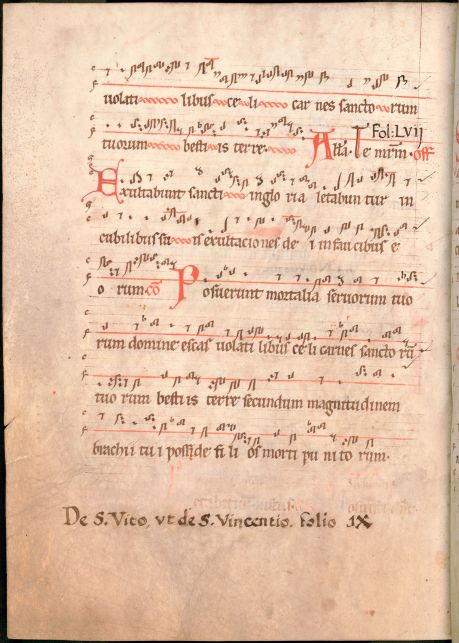 uolati libus ce li car nes sancto rum
Fol: LVII
tuorum besti is terre. Alla. Te mrm. off
Exultabunt sancti in glo ria letabun tur in
cubilibus su is exultaciones de i in faucibus e
o rum. co Posuerunt mortalia seruorum tuo
rum domine escas uolati libus ce li carnes sancto ru
tuo rum besti is terre secundum magnitudinem
brachii tu i posside fi li os morti pu ni to rum.
De S. Vito, vt de S. Vincentio. folio IX